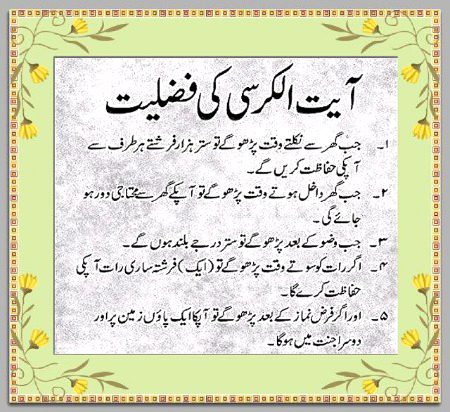 آیت الکرسی کی فضلیت
۱۔ جب گھر سے نکلتے وقت پڑھو گے تو ستر ہزار فرشتے ہر طرف سے
آپکی حفاظت کریں گے۔
۲۔ جب گھر داخل ہوتے وقت پڑھو گے تو آپکے گھر سے محتاجی دور ہو
جائے گی۔
۳۔ جب وضو کے بعد پڑھو گے تو ستر درجے بلند ہوں گے۔
۴۔ اگر رات کو سوتے وقت پڑھو گے تو (ایک) فرشتہ ساری رات آپکی
حفاظت کرے گا۔
۵۔ اور اگر فرض نماز کے بعد پڑھو گے تو آپکا ایک پاؤں زمین پر اور
دوسرا جنت میں ہو گا۔